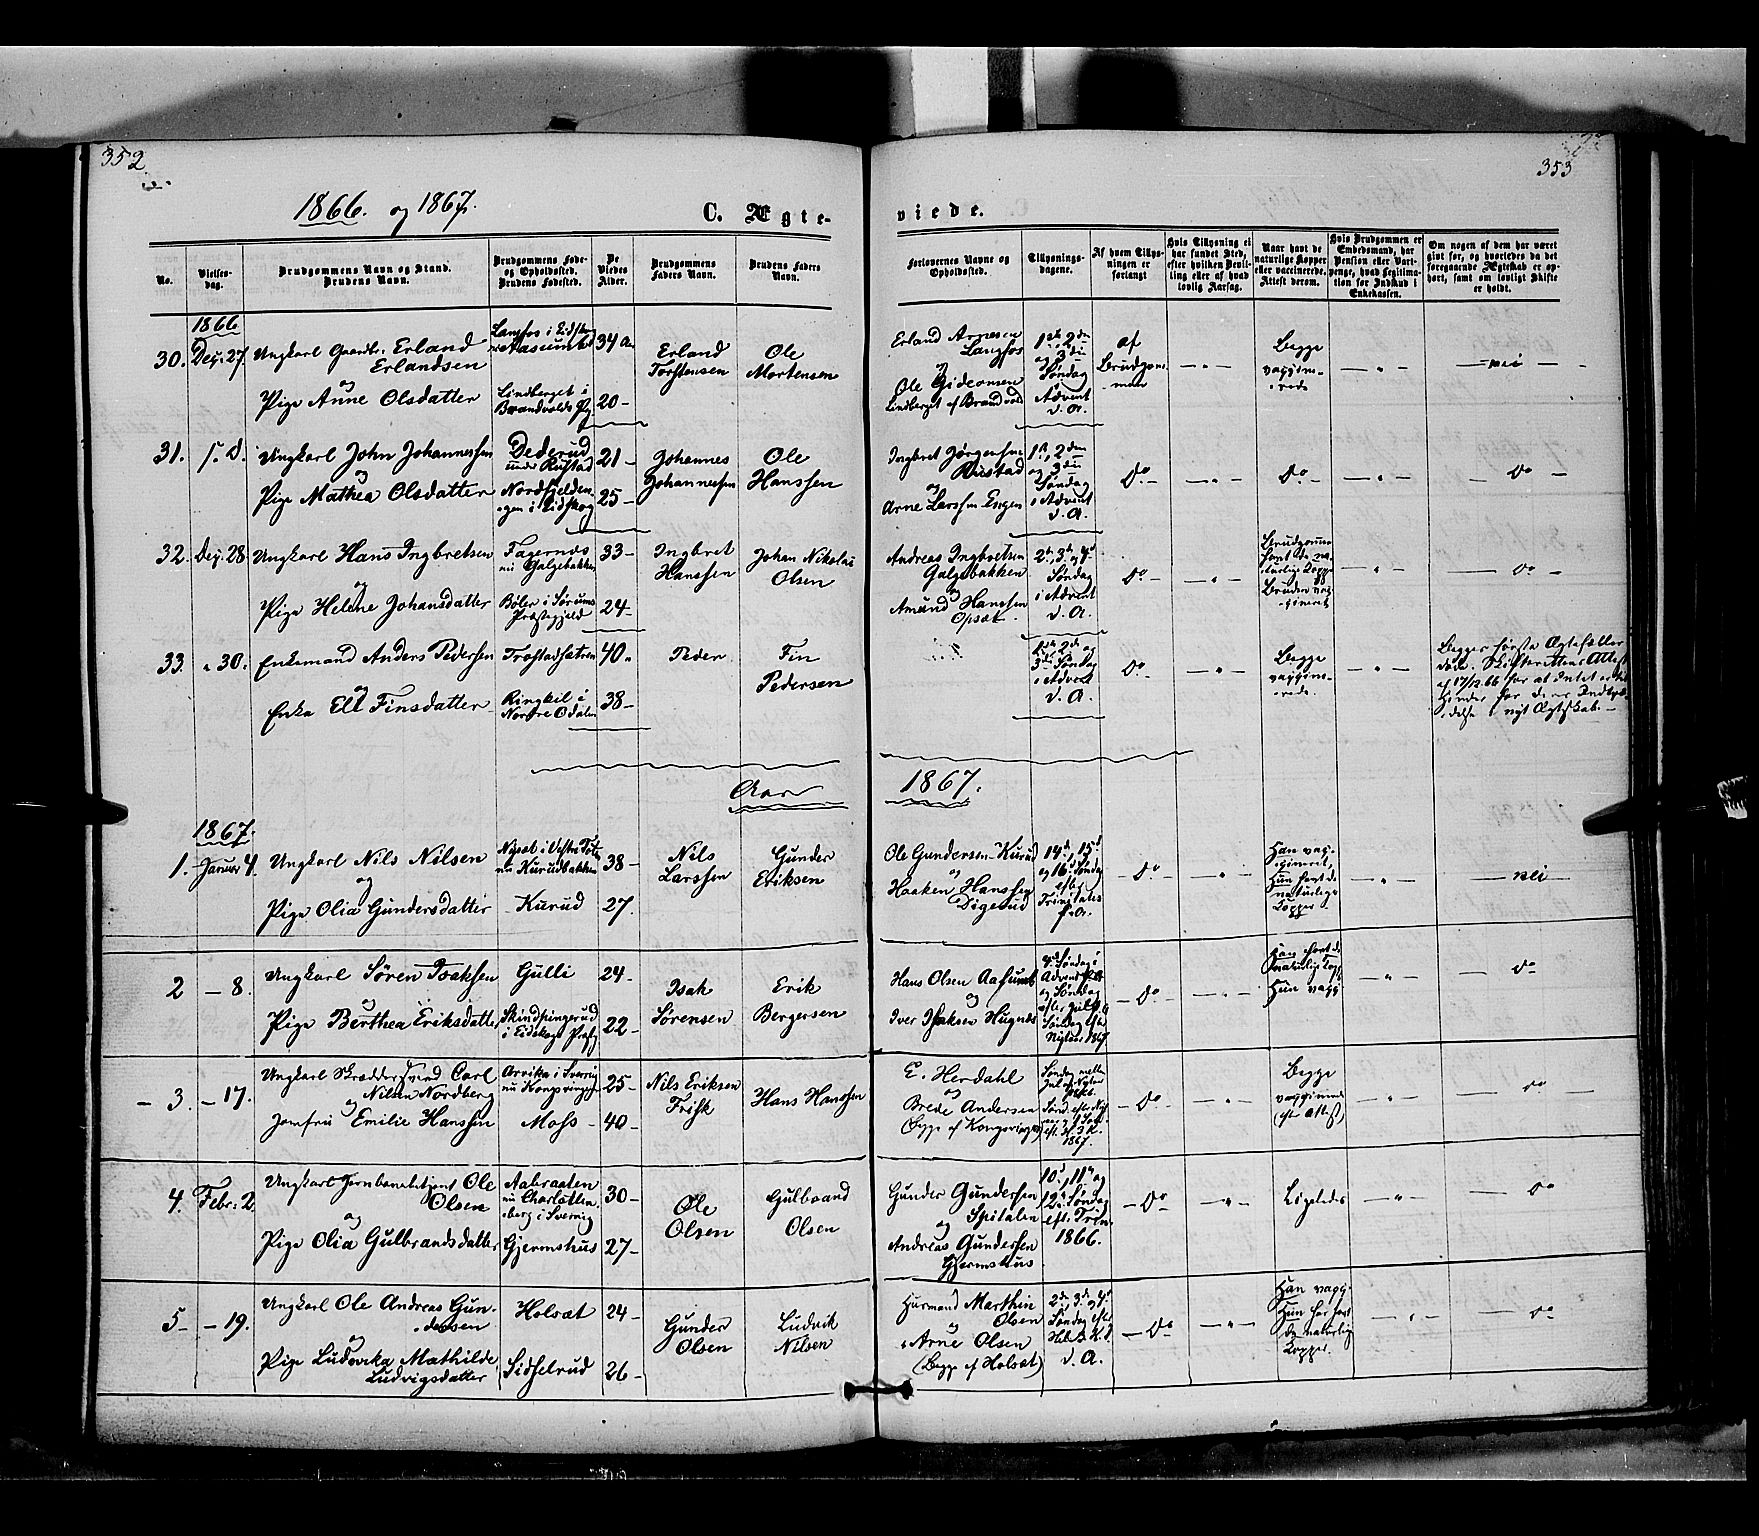 352
353
1866. og 1867.
C. Ægte-
viede.
No.
Vielses-
dag.
Brudgommens Navn og Stand.
Brudens Navn.
Brudgommens Føde-
og Opholdssted.
Brudens Fødested.
De
Viedes
Alder.
Brudgommens
Faders Navn.
Brudens Faders
Navn.
Forlovernes Navne og
Opholdssted.
Tillysnings-
dagene.
Af hvem Tillys-
ningen er
forlangt
Hvis Tillysning ei
har fundet Sted,
efter hvilken Bevil-
ling eller af hvad
lovlig Aarsag.
Naar havt de
naturlige Kopper
eller vaccinerede.
Attest derom.
Hvis Brudgommen er
Embedsmand, har
Pension eller Vart-
penge, hvad Legitima-
tion for Indskud i
Enkekassen.
Om nogen af dem har været
gift før, og hvorledes da det
foregaaende Ægteskab er op-
hørt, samt om lovligt Skifte
er holdt.
1866
30. Dez. 27.
Ungkarl Gaardbr. Erland
Erlandsen
og
Pige Anne Olsdatter
Langfos i Eidskog
Lindberget i
Brandvolds Pg.
34 a.
20 –
Erland
Torstensen
Ole
Mortensen
Erland Arnesen
Langfos
og
Ole Gideonsen
Lindberget af Brandvold
1ste, 2den
og 3die
Søndag
i Advent
d. A.
af
Brudgom-
men
– " –
Begge
vaggin-
erede
– " –
– nei –
31. s. D.
Ungkarl John Johannessen
og
Pige Mathea Olsdatter
Dederud
under Rustad
Nordfjelden-
gen i Eidskog
21 –
25 –
Johannes
Johannessen
Ole
Hanssen
Ingbret Jørgensen
Rustad
og
Arne Larssen Engen
1ste, 2den
og 3die
Søndag
i Advent
d. A.
Do –
– " –
Do. –
– " –
Do –
32. Dez. 28
Ungkarl Hans Ingbretsen
og
Pige Helene Johansdatter
Fagernæs
nu Galgebakken
Bøler i Sørums
Præstegjeld
33 –
24 –
Ingbret
Hanssen
Johan Nikolai
Olsen
Andreas Ingbretsen
Galgebakken
og
Amund Hanssen
Opsæt.
2den, 3die, og 4de
Søndag
i Advent
d. A.
Do –
– " –
Brudgommen
havt de na-
turlige Kopper
Bruden vag-
gineret
– " –
– Do –
33. " 30.
Enkemand Anders Pedersen
og
Enke Eli Finsdatter
Trostadsætren
Ringkil i
Nordre Odalen
40 "
38 –
Peder
Fin
Pedersen
1ste 2den og
3die Søndag
i Advent
d. A.
Do. –
– " –
Begge
vaggin-
erede.
– " –
Begges første Ægtefæller
døde. Skifterettens Attest
af 17/12 66 for at Intet er til
Hinder for deres Indtræ-
delse i nyt Ægteskab. –
Aar
1867.
1867.
1. Januar 4.
Ungkarl Nils Nilsen
og
Pige Olia Gundersdatter
Nysæt i Vestre Toten
nu Kurudbakken
– Kurud
38 –
27.
Nils
Larssen
Gunder
Eriksen
Ole Gundersen Kurud
og
Haaken Hanssen
Digerud
14de, 15de
og 16de Søndag
efter
Trinitatis
f. A.
– Do –
– " –
Han vag-
gineret,
Hun havt de
naturlige
Kopper
– " –
– nei –
2 – 8.
Ungkarl Sören Isaksen
og
Pige Berthea Eriksdatter
Gulli
i Eidskogs Præstg
24 –
22 –
Isak
Sörensen
Erik
Bergersen
Hans Olsen Aasum
og
Iver Isaksen Hugnæs
4de Søndag i
Advent
og Søndag
efter Jul
Søndag efter
Nytaar 1867
– Do –
– " –
Han havt de
naturlige Kopp
Hun vagg
– " –
– Do –
– 3. – 17.
Ungkarl Skræddersvend Carl
og Nilsen Nordberg
Jomfru Emilie Hanssen
Arvika i Sverrig
nu Kongsvinger
Moss –
25 –
40 –
Nils Eriksen
Frisk
Hans Hanssen
E. Herdahl
og
Brede Andersen
(Begge af Kongsvinger)
Søndag mellem
Jul og Nytaar
1866.
1867.
– Do –
– " –
Begge
vagginerede
(efter Attest)
– " –
– Do –
4. Febr: 2
Ungkarl Jernbanebetjent Ole
Olsen
og
Pige Olia Gulbrandsdatter
Aabraaten
nu Charlotten-
berg i Sverrig
Gjermshus
30 –
27 –
Ole
Olsen
Gulbrand
Olsen
Gunder Gundersen
og Spitalen
Andreas Gundersen
Gjermshus
10de, 11te og
12te Søndag
eft. Trin.
1866.
– Do –
– " –
Ligeledes
– " –
– Do
5 – – 19.
Ungkarl Ole Andreas Gun-
dersen
og
Pige Ludovika Mathilde
Ludvigsdatter
Holsæt
Sidselrud
24 –
26 –
Gunder
Olsen
Ludvik
Nilsen
Husmand Marthin
Olsen
og
Arne Olsen
(Begge af Holsæt)
2den 3die og 4de
Søndag efter
Hell. 3 K. D.
d. A.
– Do –
– " –
Han vagg.
Hun har havt
de naturlig
Kopper.
– " –
– Do